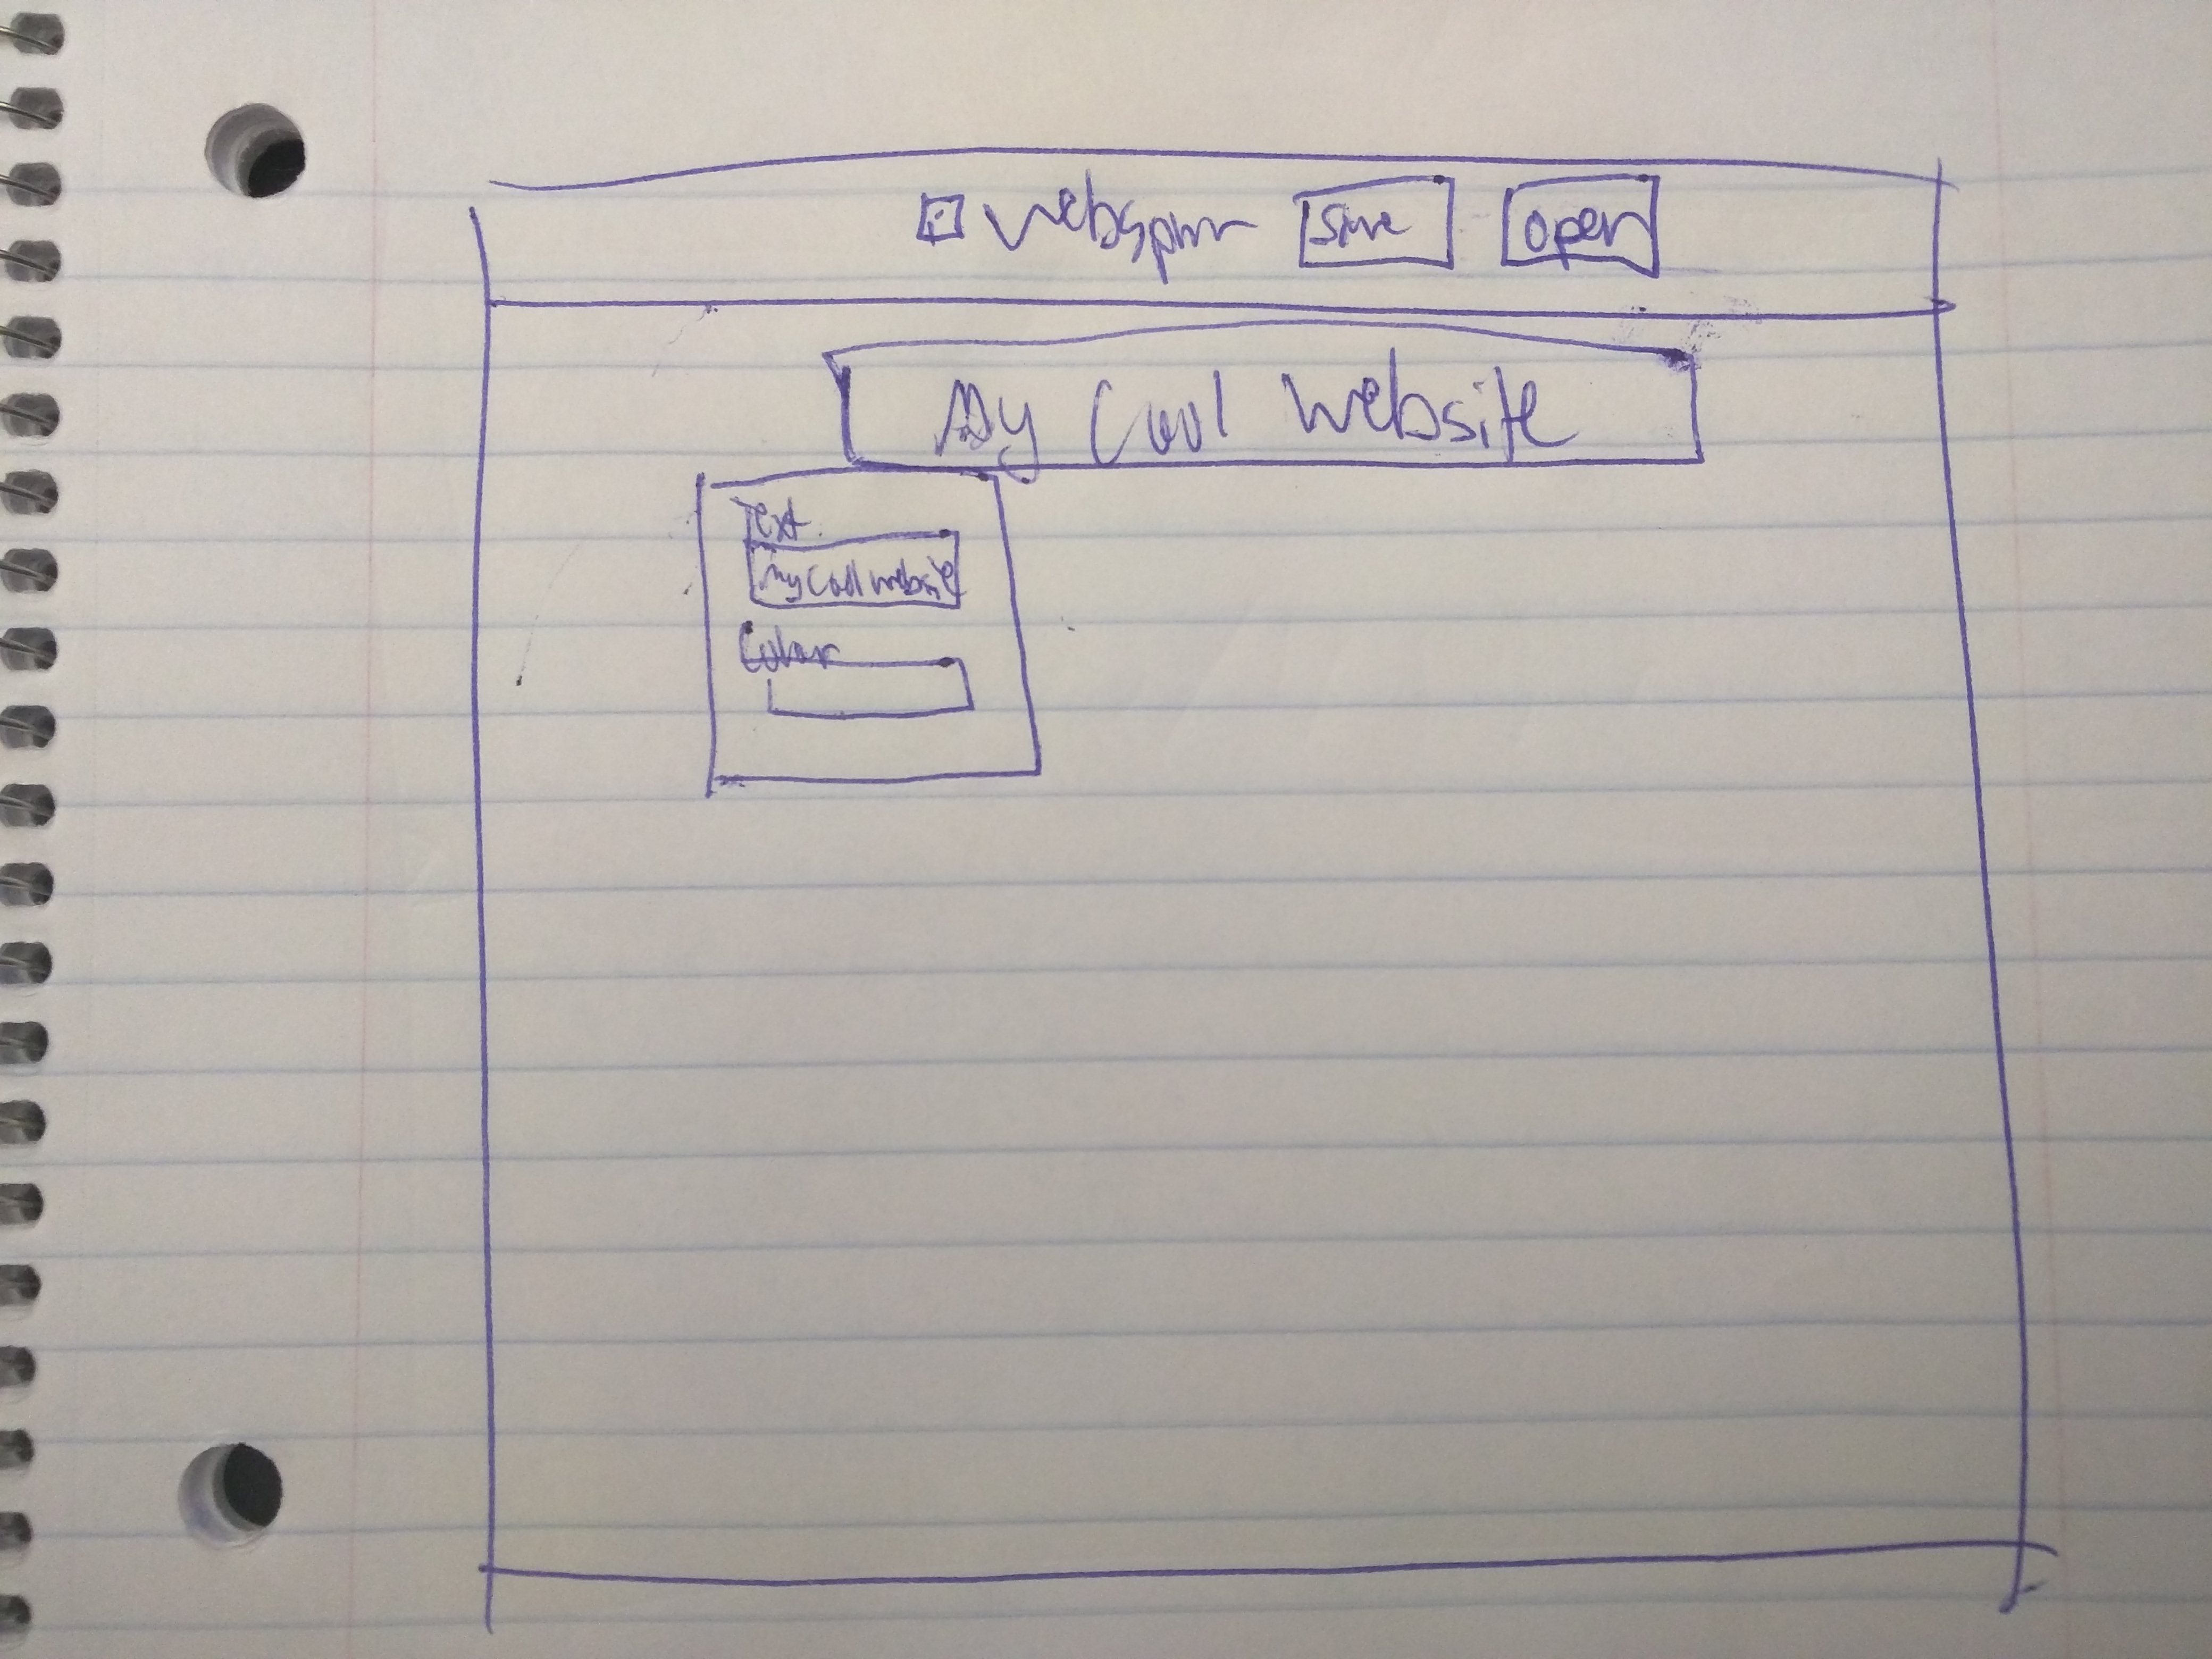 Webspinr Save Open
My Cool Website
Text
My Cool Website
Color